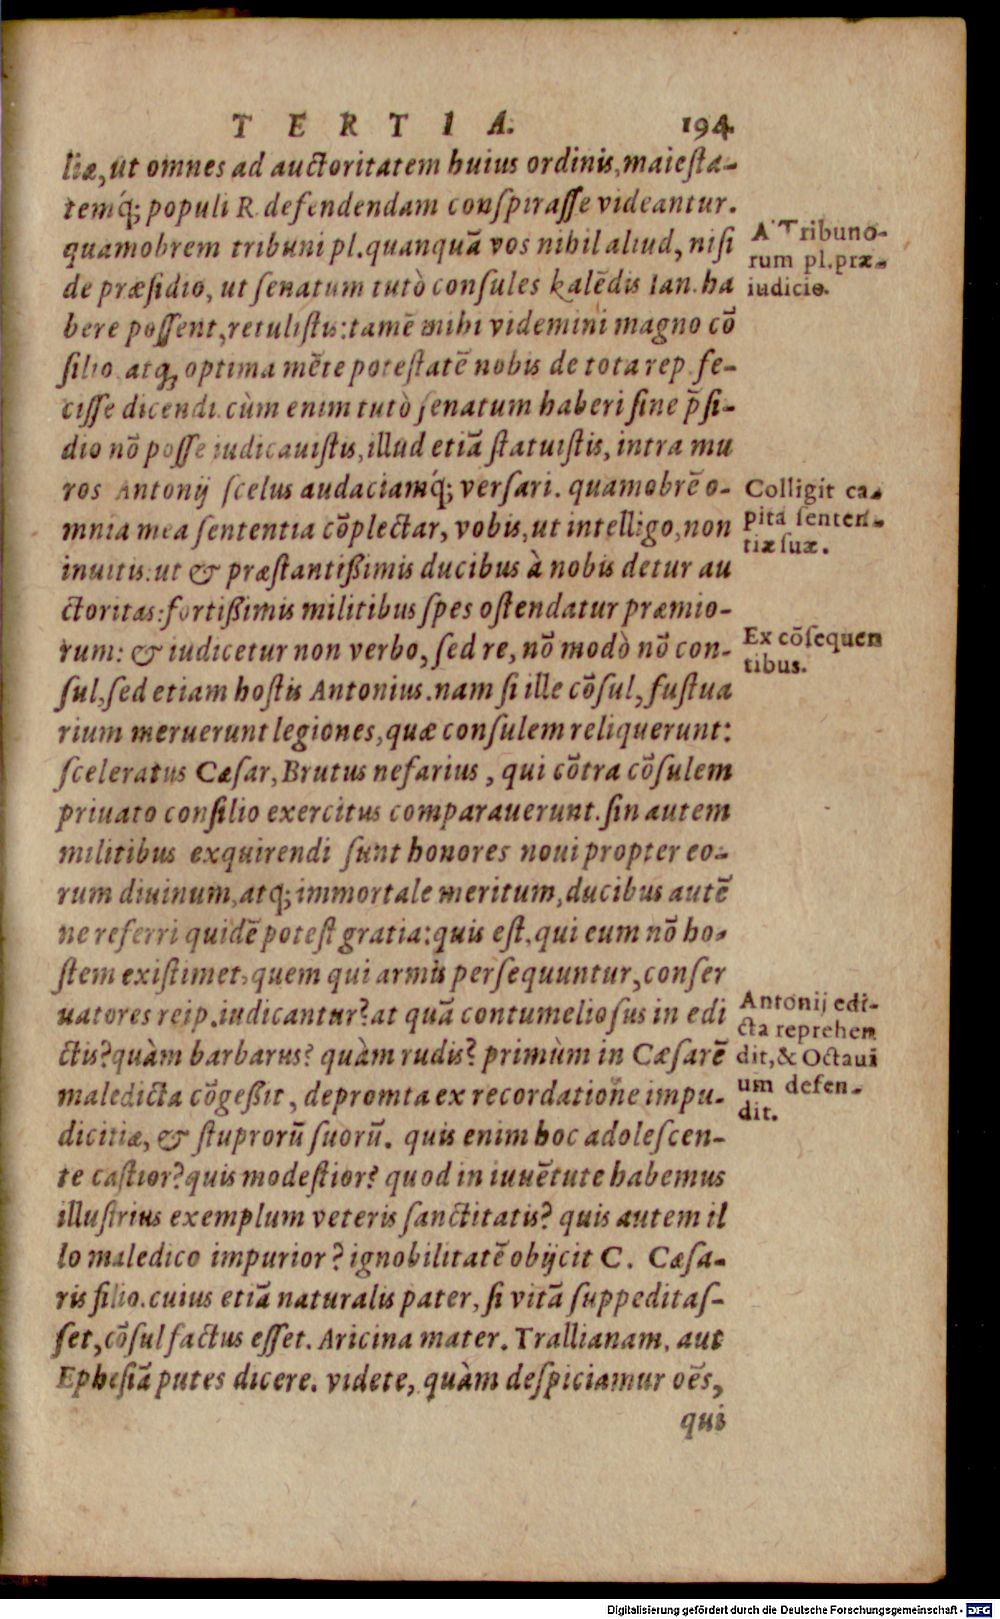 TERTIA. 194.
liæ, ut omnes ad auctoritatem huius ordinis, maiesta-
temq́; populi R. defendendam conspirasse videantur.
quamobrem tribuni pl. quanquā vos nihil aliud, nisi
de præsidio, ut senatum tutò consules kalēdis Ian. ha
bere possent, retulistis: tamē mihi videmini magno cō
silio, atq; optima mēte potestatē nobis de tota rep. fe-
cisse dicendi. cùm enim tutò senatum haberi sine p̄si-
dio nō posse iudicauistis, illud etiā statuistis, intra mu
ros Antonij scelus audaciamq́; versari. quamobrē o-
mnia mea sententia cōplectar, vobis, ut intelligo, non
inuitis. ut & præstantißimis ducibus à nobis detur au
ctoritas: fortißimis militibus spes ostendatur præmio-
rum: & iudicetur non verbo, sed re, nō modò nō con-
sul, sed etiam hostis Antonius. nam si ille cōsul, fustua
rium meruerunt legiones, quæ consulem reliquerunt:
sceleratus Cæsar, Brutus nefarius, qui cōtra cōsulem
priuato consilio exercitus comparauerunt. sin autem
militibus exquirendi sunt honores noui propter eo-
rum diuinum, atq; immortale meritum, ducibus autē
ne referri quidē potest gratia: quis est, qui eum nō ho-
stem existimet, quem qui armis persequuntur, conser
uatores reip. iudicantur? at quā contumeliosus in edi
ctis? quàm barbarus? quàm rudis? primùm in Cæsarē
maledicta cōgeßit, depromta ex recordatione impu-
dicitiæ, & stuprorū suorū. quis enim hoc adolescen-
te castior? quis modestior? quod in iuuētute habemus
illustrius exemplum veteris sanctitatis? quis autem il
lo maledico impurior? ignobilitatē obijcit C. Cæsa-
ris filio. cuius etiā naturalis pater, si vitā suppeditas-
set, cōsul factus esset. Aricina mater. Trallianam, aut
Ephesiā putes dicere. videte, quàm despiciamur oēs,
qui
A Tribuno-
rum pl. præ-
iudicio.
Colligit ca-
pita senten-
tiæ suæ.
Ex cōsequen
tibus.
Antonij edi-
cta reprehen
dit, & Octaui
um defen-
dit.
Digitalisierung gefördert durch die Deutsche Forschungsgemeinschaft - DFG